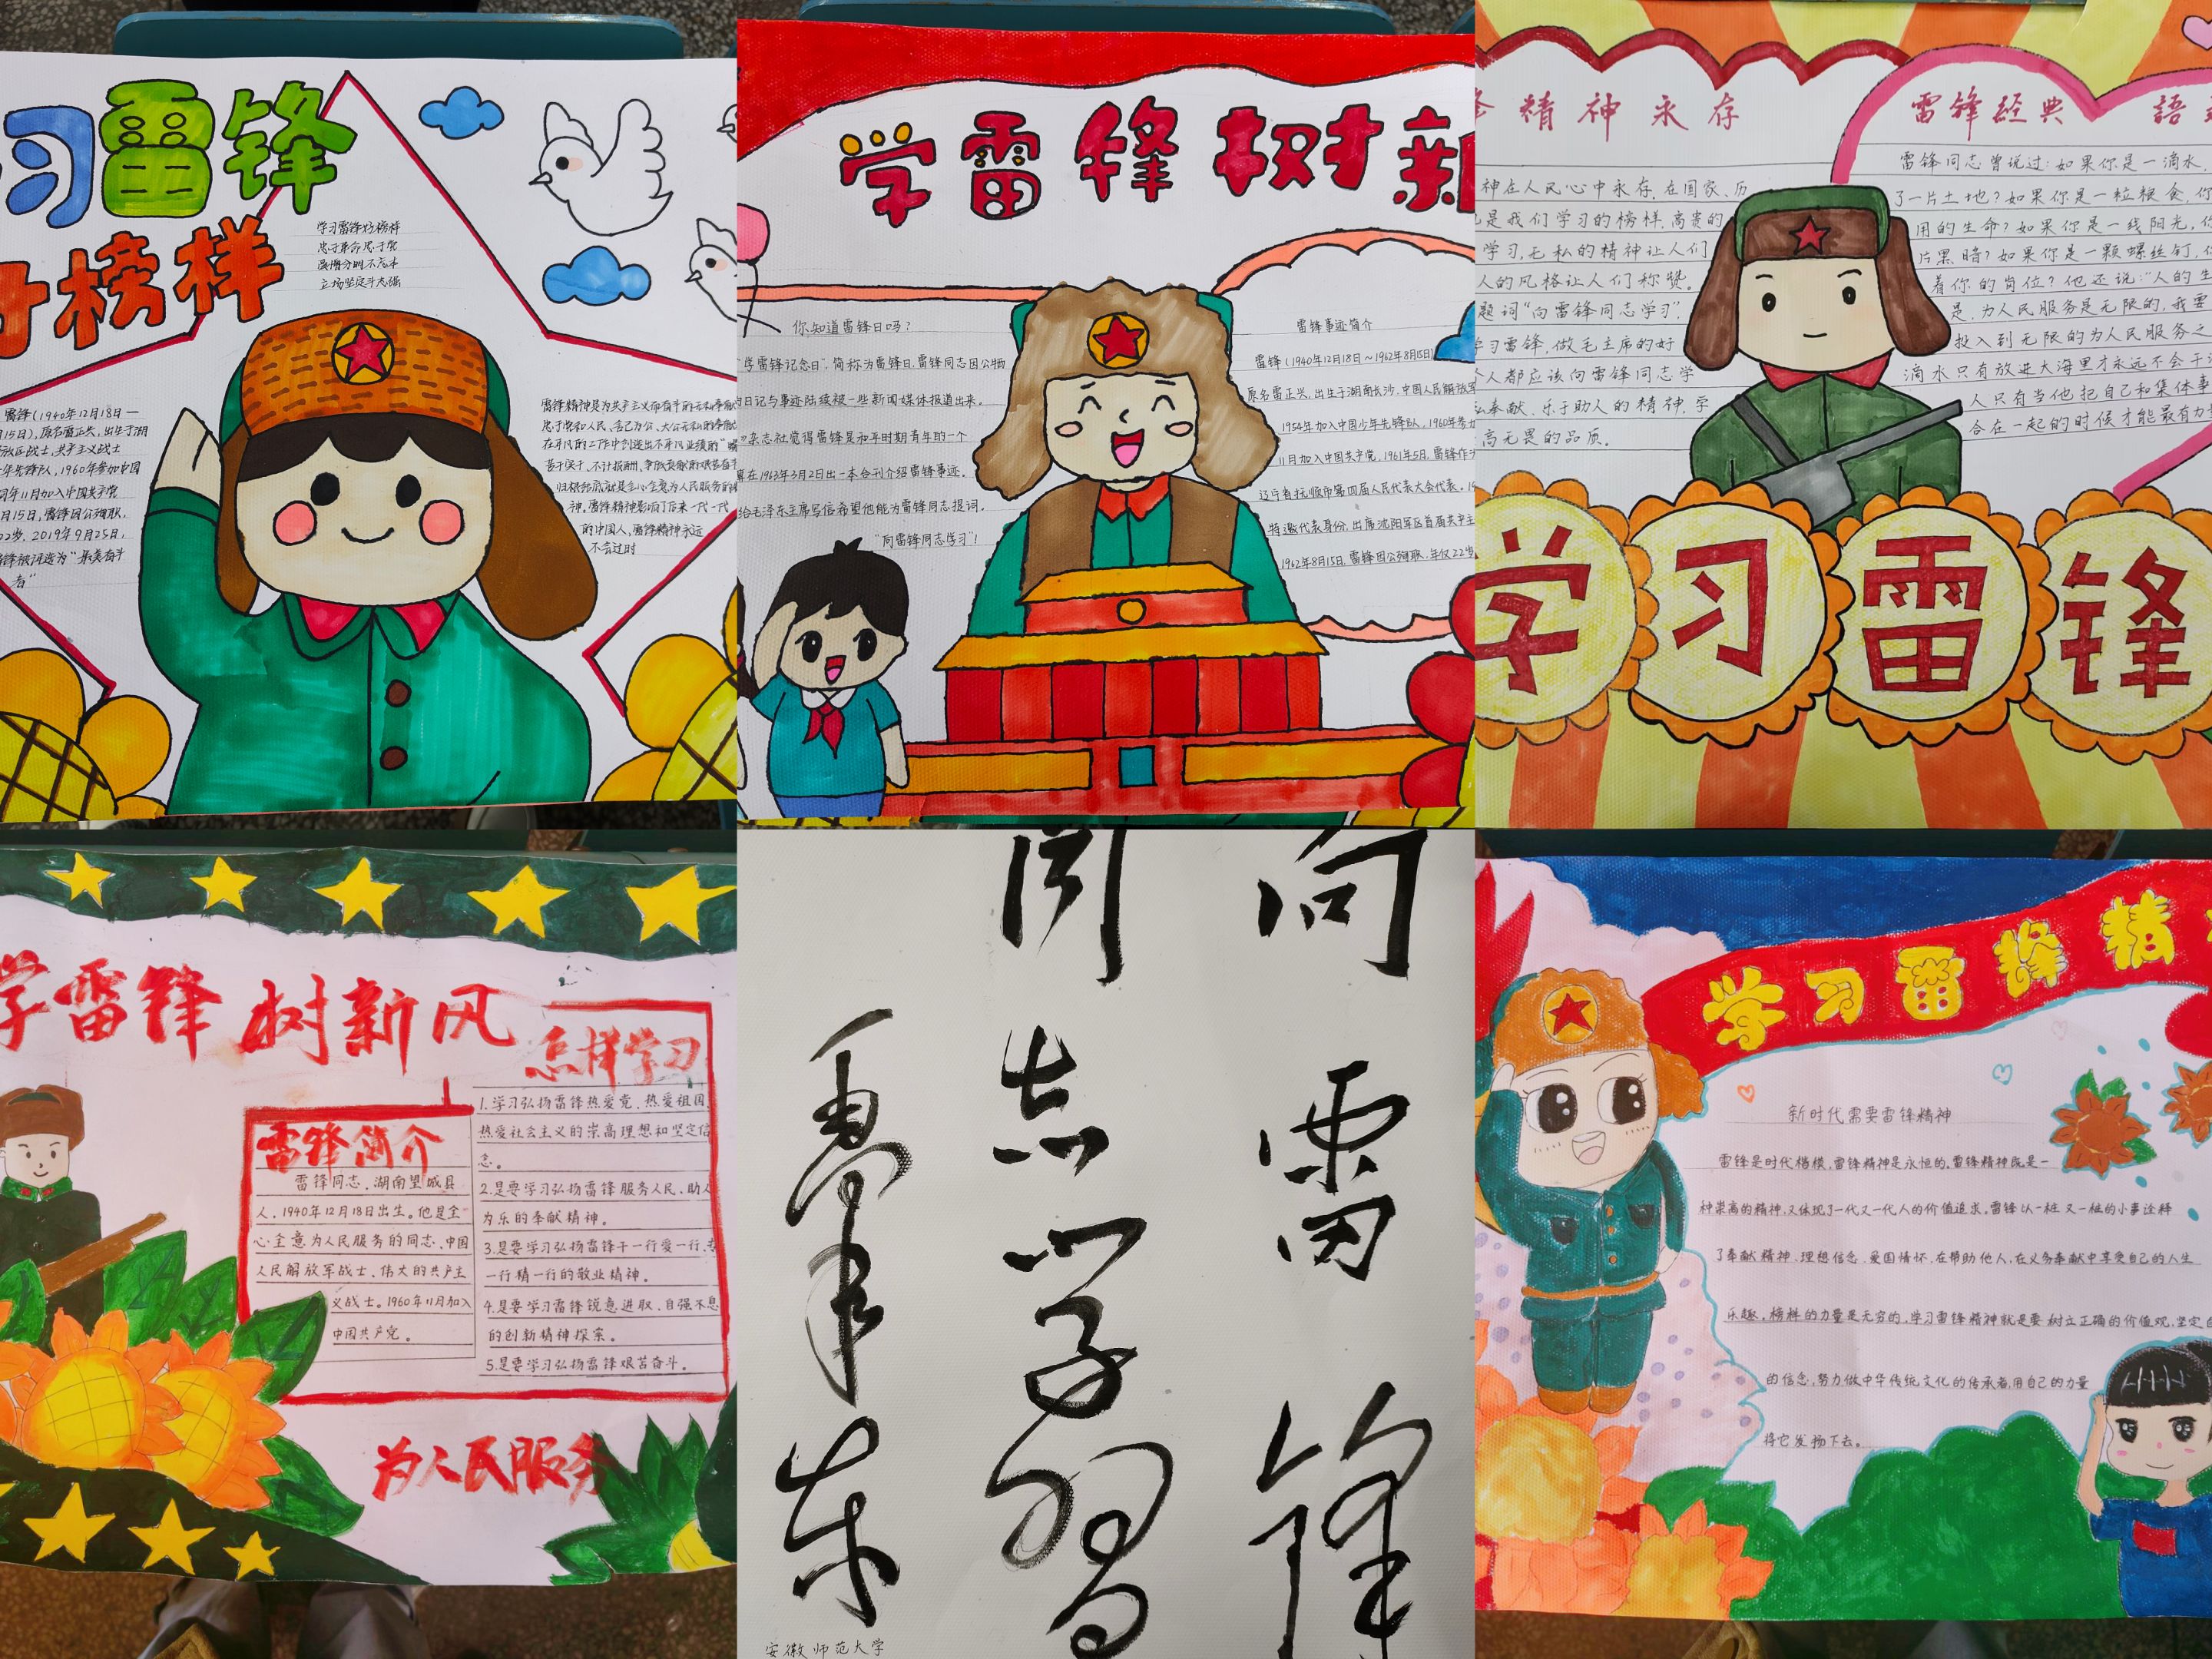 习雷锋
榜样
学习雷锋好榜样
忠于革命忠于党
爱憎分明不忘本
立场坚定斗志强
雷锋(1940年12月18日—
月15日),原名雷正兴,出生于湖
战士,共产主义战士
年先锋队,1960年参加中国
同年11月加入中国共产党
月15日,雷锋因公殉职,
22岁。2019年9月25日,
雷锋被评选为“最美奋斗
者”
雷锋精神是为共产主义而奋斗的无私奉献
忠于党和人民、舍己为公、大公无私的奉献
在平凡的工作中创造出不平凡业绩的“螺
苦干实干、不计报酬、争做贡献的艰苦奋斗
归根结底就是全心全意为人民服务的
神。雷锋精神影响了后来一代一代
的中国人,雷锋精神永远
不会过时
学雷锋树新
你知道雷锋日吗?
“学雷锋记念日”,简称为雷锋日,雷锋同志因公牺
的日记与事迹陆续被一些新闻媒体报道出来。
杂志社觉得雷锋是和平时期青年的一个
算在1963年3月2日出一本合刊介绍雷锋事迹。
给毛泽东主席写信希望他能为雷锋同志提词。
“向雷锋同志学习”!
雷锋事迹简介
雷锋(1940年12月18日~1962年8月15日)
原名雷正兴,出生于湖南长沙,中国人民解放军
1954年加入中国少年先锋队,1960年参加
11月加入中国共产党。1961年5月,雷锋作为
辽宁省抚顺市第四届人民代表大会代表。19
特邀代表身份,出席沈阳军区首届共产主
1962年8月15日,雷锋因公殉职,年仅22岁
精神永存
神在人民心中永存,在国家、历
是我们学习的榜样,高贵的
学习,无私的精神让人们
人的风格让人们称赞。
题词“向雷锋同志学习”,
学习雷锋,做毛主席的好
个人都应该向雷锋同志学
私奉献、乐于助人的精神,学
高无畏的品质。
雷锋经典 語
雷锋同志曾说过:如果你是一滴水,
了一片土地?如果你是一粒粮食,你
用的生命?如果你是一线阳光,你
片黑暗?如果你是一颗螺丝钉,你
着你的岗位?他还说:“人的生
是,为人民服务是无限的,我要
投入到无限的为人民服务之
滴水只有放进大海里才永远不会干
人只有当他把自己和集体事
合在一起的时候才能最有力量
学习雷锋
学雷锋 树新风
怎样学习
雷锋简介
雷锋同志,湖南望城县
人,1940年12月18日出生。他是全
心全意为人民服务的同志,中国
人民解放军战士、伟大的共产主
义战士。1960年11月加入
中国共产党。
1.学习弘扬雷锋热爱党、热爱祖国、
热爱社会主义的崇高理想和坚定信
念。
2.是要学习弘扬雷锋服务人民、助人
为乐的奉献精神。
3.是要学习弘扬雷锋干一行爱一行、专
一行精一行的敬业精神。
4.是要学习雷锋锐意进取、自强不息
的创新精神探索。
5.是要学习弘扬雷锋艰苦奋斗。
为人民服务
向雷锋
同志学习
毛泽东
安徽师范大学
学习雷锋精
新时代需要雷锋精神
雷锋是时代楷模,雷锋精神是永恒的,雷锋精神既是一
种崇高的精神,又体现了一代又一代人的价值追求。雷锋以一桩又一桩的小事诠释
了奉献精神、理想信念、爱国情怀,在帮助他人,在义务奉献中享受自己的人生
乐趣。榜样的力量是无穷的,学习雷锋精神就是要树立正确的价值观,坚定自
的信念,努力做中华传统文化的传承者,用自己的力量
将它发扬下去。